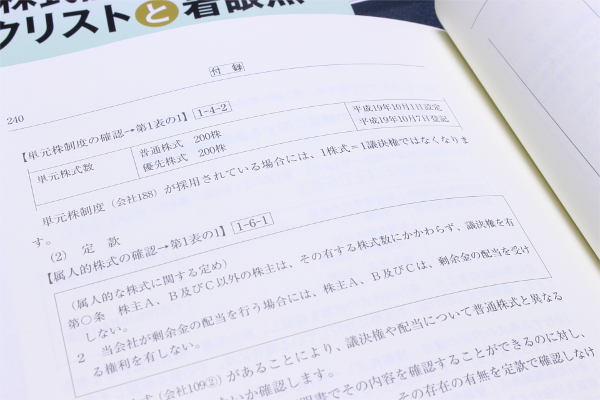 クリストと着眼点
付 録
240
【単元株制度の確認→第1表の1】 1-4-2
単元株式数
普通株式 200株
優先株式 200株
平成19年10月1日設定
平成19年10月7日登記
単元株制度(会社188)が採用されている場合には、1株式=1議決権ではなくなりま
す。
(2) 定 款
【属人的株式の確認→第1表の1】 1-6-1
(属人的な株式に関する定め)
第○条 株主A、B及びC以外の株主は、その有する株式数にかかわらず、議決権を有
しない。
2 当会社が剰余金の配当を行う場合には、株主A、B及びCは、剰余金の配当を受け
る権利を有しない。
式(会社109②)があることにより、議決権や配当について普通株式と異なる
いか確認します。
書でその内容を確認することができるのに対し、
その存在の有無を定款で確認しなけ